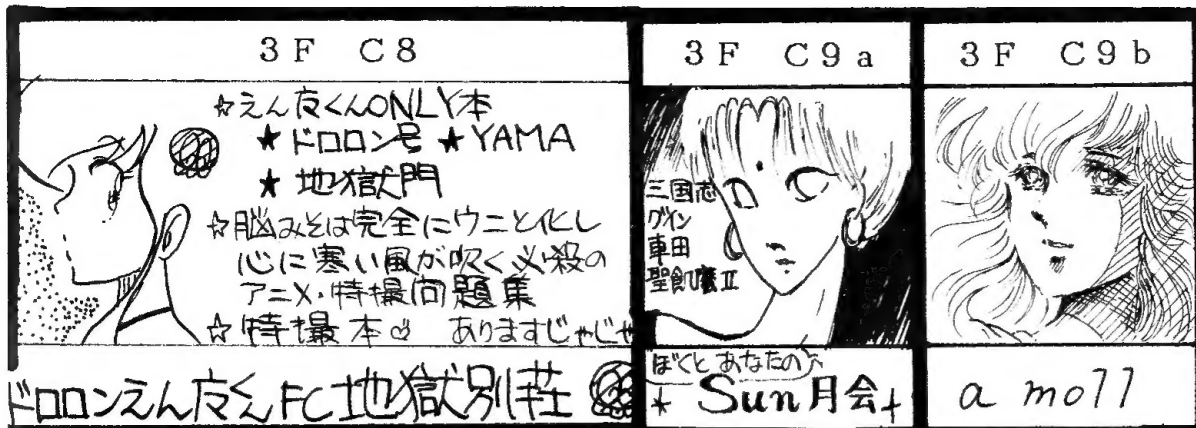 3F C8
☆えん魔くんONLY本
★ドロロン号 ★YAMA
★地獄門
☆脳みそは完全にウニと化し
心に寒い風が吹く必殺の
アニメ・特撮問題集
☆特撮本 ありますじゃじゃ
ドロロンえん魔くんFC地獄別荘
3F C9a
三国志
グイン
車田
聖飢魔II
ぼくとあなたの
Sun月会
3F C9b
a moll